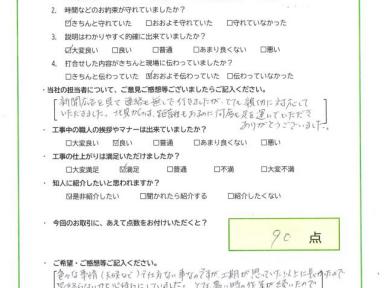 2. 時間などのお約束が守れていましたか?
☑きちんと守れていた □おおよそ守れていた □守れていなかった
3. 説明はわかりやすく的確に出来ていましたか?
☑大変良い □良い □普通 □あまり良くない □悪い
4. 打合せした内容がきちんと現場に伝わっていましたか?
□きちんと伝わっていた ☑おおよそ伝わっていた □伝わっていなかった
・当社の担当者について、ご意見ご感想等ございましたらご記入ください。
新聞広告を見て連絡も無しで行きましたが、とても親切に対応して
いただきました。社員が 距離もあるのに何度も足を運んでいただき
ありがとうございました。
・工事中の職人の挨拶やマナーは出来ていましたか?
□大変良い ☑良い □普通 □あまり良くない □悪い
・工事の仕上がりは満足いただけましたか?
□大変満足 ☑満足 □普通 □不満 □大変不満
・知人に紹介したいと思われますか?
☑是非紹介したい □聞かれたら紹介する □紹介したくない
・今回のお取引に、あえて点数をお付けいただくと?
90 点
・ご希望・ご感想等ご記入ください。
色々な事情 仕方ない事なのですが、工期が思っていた以上に長かったので
とても暑い時の作業が続いたので